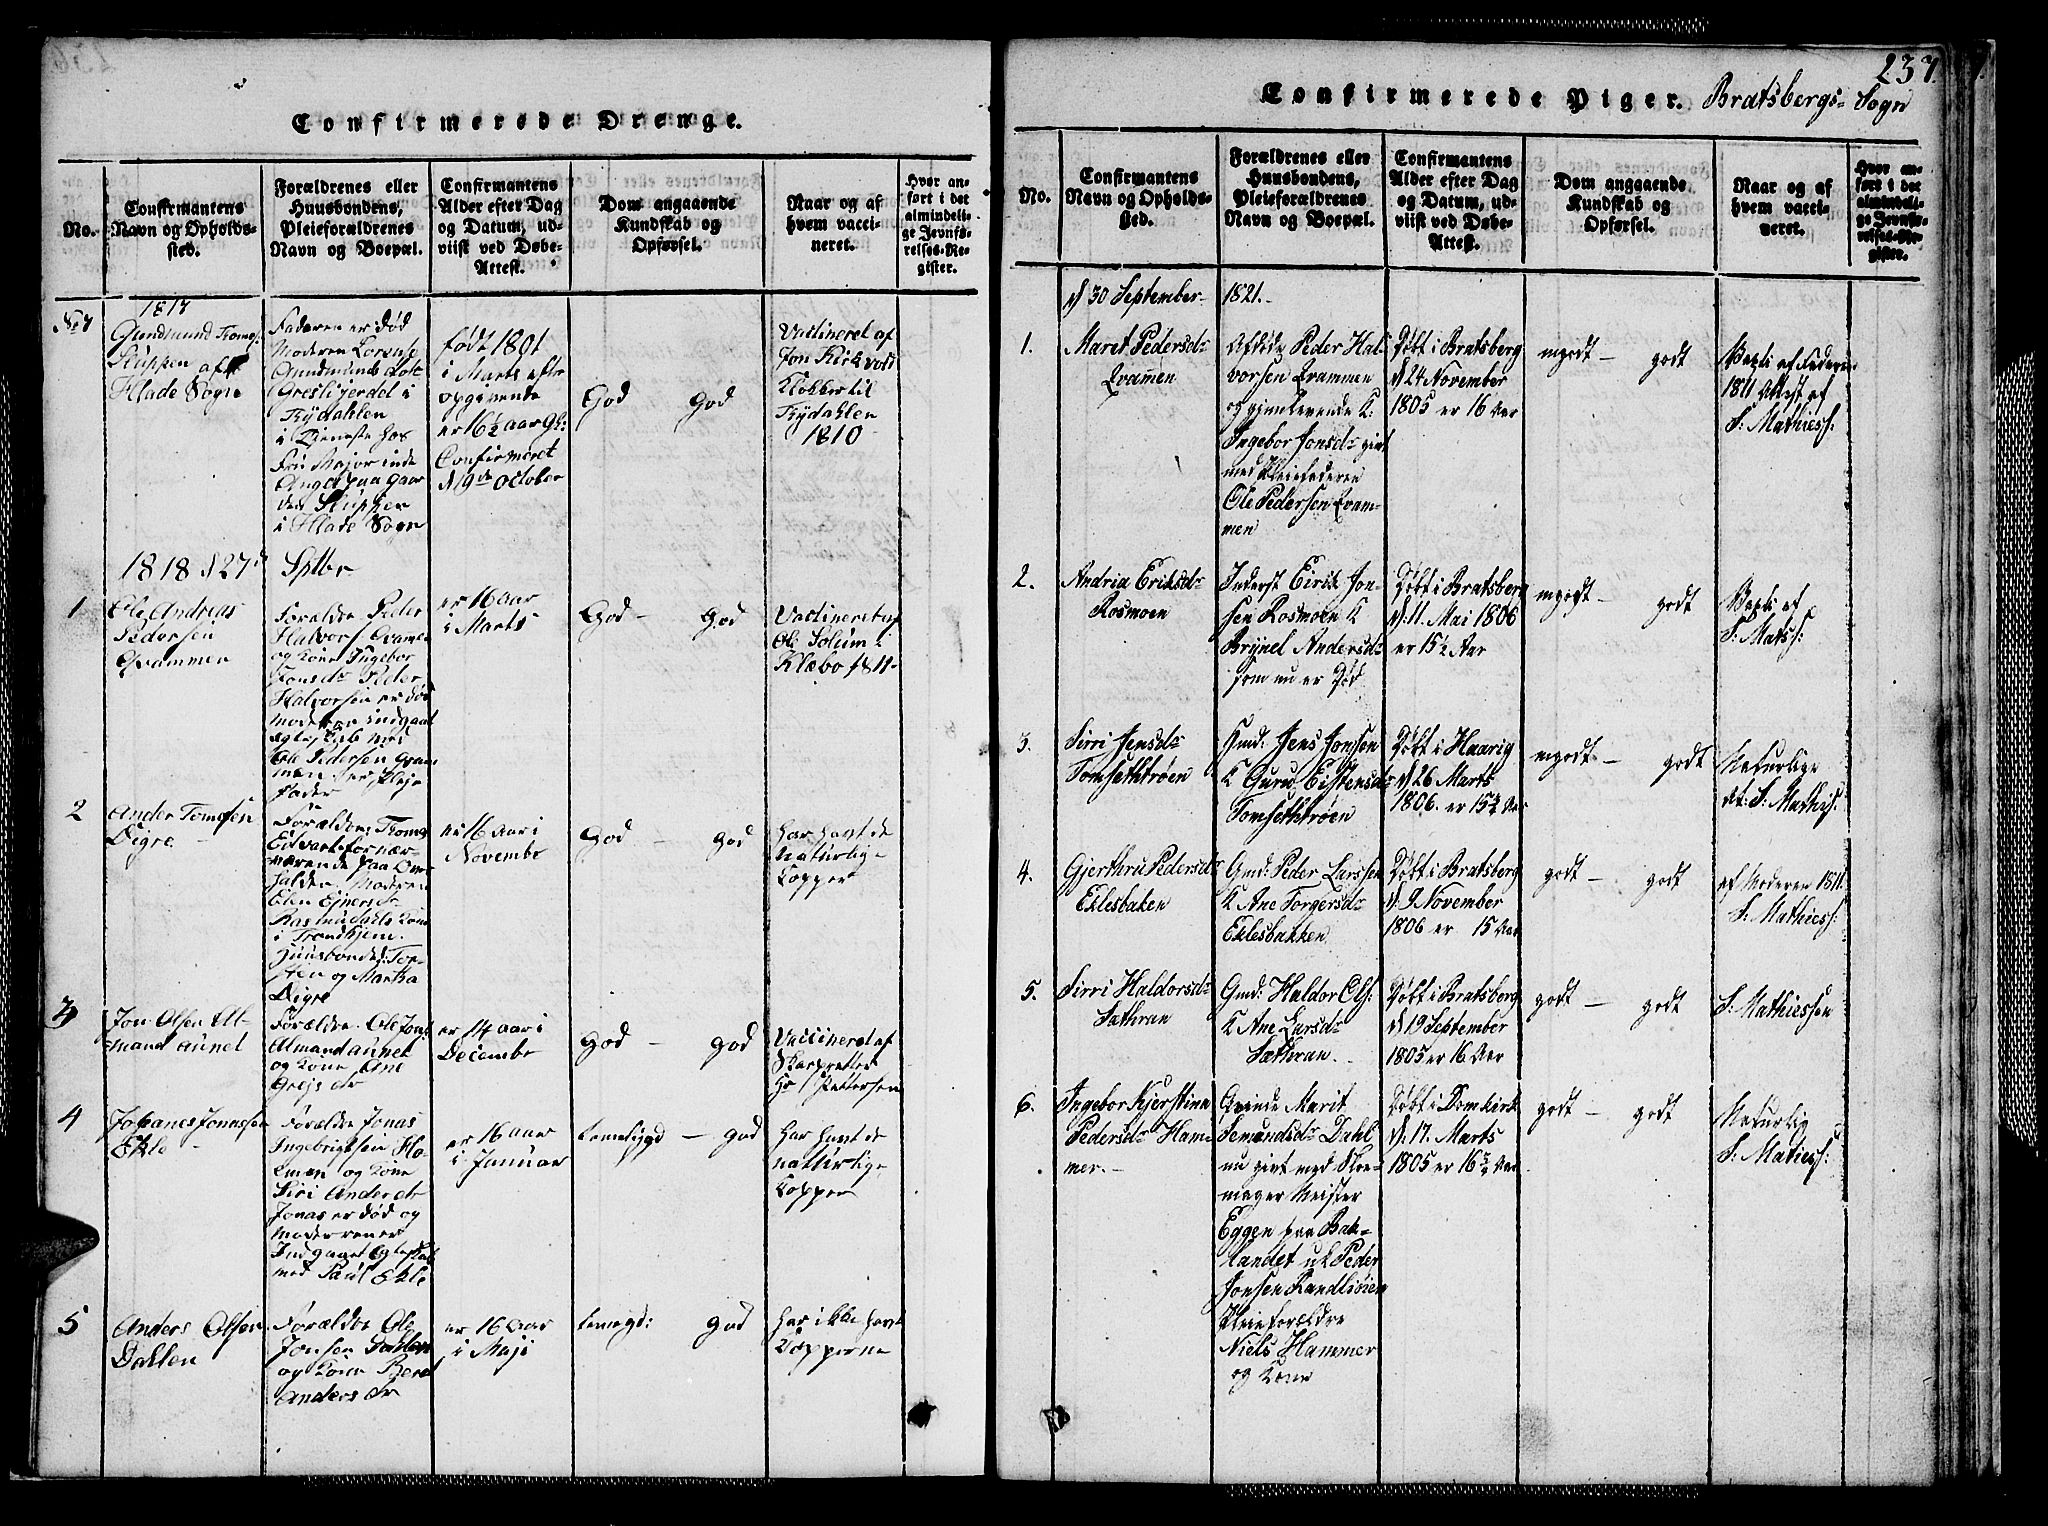 Confirmerede Drenge.
No.
Confirmantens Navn og Opholds-sted.
Forældrenes eller Huusbondens, Pleieforældrenes Navn og Boepæl.
Confirmantens Alder efter Dag og Datum, ud-viist ved Døbe-Attest.
Dom angaaende Kundskab og Opførsel.
Naar og af hvem vacci-neret.
Hvor an-ført i det almindeli-ge Jevnfø-relses-Re-gister.
1817
No 7
Gundmund Tromgs
Stuppen af
Hlade Sogn
Faderen er død
Moderen Lorense
Gundmunds
i Tydahlen
i Tjeneste hos
Fru Majorinde
Angel paa Gaar
den Stuppen
i Hlade Sogn
født 1801
i Marts efter
opgivende
er 16½ aar Gl:
Confirmeret
d 19de October
God
God
Vactineret af
Jon Kirkvold
Klokker til
Tydahlen
1810
1818 d 27d
Sptbr
1
Ole Andreas
Pedersen
Qvammen
Forældre Peder
Halvors Qvamen
og Kone Ingebor
Jonsdr Peder
Halvorsen er død
Moderen indgaaet
egteskab med
Ole Pedersen Qvam
men
fader
er 16 aar
i Marts
God -
God
Vactineret af
Ole Solum i
Klæbo 1811
2
Ander Tomesen
Digre
Forældre: Tromg
nærende paa
Moderen
Elen Ejnersdr
i Trondhjem.
Huusbonde: Tor-
sten og Martha
Digre
er 16 aar i
Novembr
God -
God
har havt de
naturlige
Kopper
3
Jon Olsen Al-
mand aunet
Forældre Ole Jons
Almandaunet
og Kone Ane
Grejsdr
er 14 aar i
Decembr
God -
God
Vaccineret af
Skarpretter
Hr Pettersen
4
Johanes Jonassen
Ekle
Forældre Jonas
Ingebrigtsen Ho-
lmen og Kone
Siri Anderdr
Jonas er død og
Moderen er
Indgaaet Egteskab
med Paul Ekle
er 16 aar
i Januar
temeliggd -
God
har havt de
naturlige
Kopper
5
Anders Olsen
Dahlen
Forældre Ole
Jonsen Dahlen
og Kone Beret
Anders dr
er 16 aar
i Maji
temegd:
God
har ikke havt
Kopperne
237.
Confirmerede Piger. Bratsbergs- Sogn
No.
Confirmantens Navn og Opholds-sted.
Forældrenes eller Huusbondens, Pleieforældrenes Navn og Boepæl.
Confirmantens Alder efter Dag og Datum, ud-viist ved Døbe-Attest.
Dom angaaende Kundskab og Opførsel.
Naar og af hvem vacci-neret.
Hvor an-ført i det almindeli-ge Jevnfø-relses-Re-gister.
d 30 September
1821.
1.
Maret Pedersdr
Qvamen
Afdøde Peder Hal-
vorsen Qvammen
og gjenlevende K:
Ingebor Jonsdr givt
med Pleiefaderen
Ole Pedersen Qvam-
men
Døbt i Bratsberg
d 24 November
1805 er 16 Aar
mgodt -
godt
1811 Attest af
S: Mathiess:
2.
Andria Eriksdr
Rosmoen
Inderst Eirik Jon-
sen Rosmoen K
Brynel Andersdr
som nu er Død
Døbt i Bratsberg
d 11. Mai 1806
er 15½ Aar
mgodt -
godt
af
S: Matss:
3.
Sirri Jensdr
Tomsethtrøen
Hmd: Jens Jonsen
K Guru Eistensdr
Tomsethtrøen
Døbt i Haarig
d 26 Marts
1806. er 15½ Aar
mgodt -
godt
Naturlige
At: S: Mathis:
4.
Gjerthru Pedersdr
Eklesbaken
Gmd: Peder Larssen
K Ane Torgersdr
Eklesbakken
Døbt i Bratsberg
d. 9 November
1806 er 15 Aar
godt -
godt
af Moderen 1811.
S: Mathiess:
5.
Sirri Haldorsdr
Sathran
Gmd: Haldor Ols:
K Ane Larsdr
Sæthran.
Døbt i Bratsberg
d 19 September
1805 er 16 Aar
godt -
godt
S: Mathiessen
6.
Ingebor Kjerstina
Pedersdr Ham-
mer.-
Qvinde Marit
Semundsdr Dahl
nu givt med Skoe-
mager Meister
Eggen paa Bak-
landet u K Peder
Jonsen Randliøien
Pleieforældre
Niels Hammer
og Kone
Døbt i Domkirk
d. 17. Marts
1805 er 16 ½ Aar
godt -
godt
Naturlig
S: Matiess: